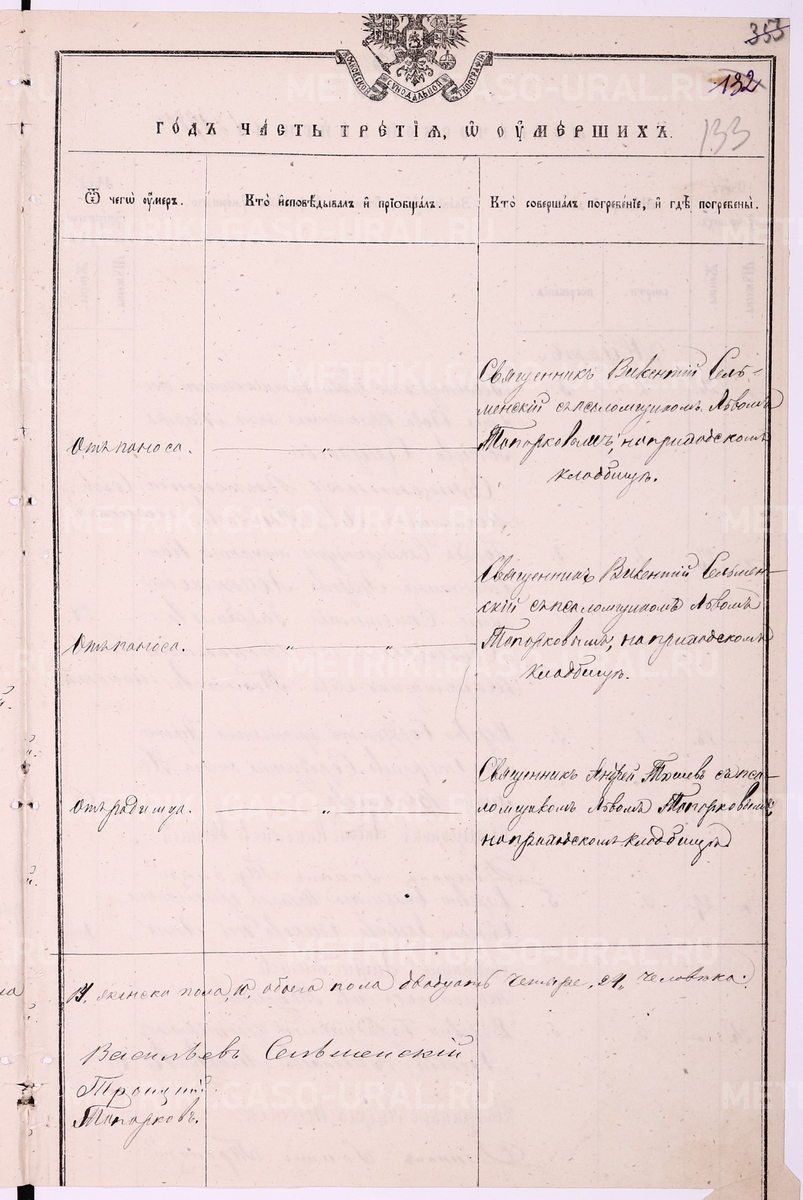 353
132
МОСКОВСКОЙ СѴНОДАЛЬНОЙ ТИПОГРАФІИ
133
ГО́ДЪ ЧА́СТЬ ТРЕ́ТІѦ, Ѿ ОУ҆МЕ́РШИХЪ.
Ѿ чегѡ̀ оу҆́меръ.
Кто̀ и҆сповѣ́дывалъ и҆ прїѻбща́лъ.
Кто̀ соверша́лъ погребе́нїе, и҆ гдѣ̀ погребены̀.
Отъ поноса.
Священникъ Викентій Сель-
менскій съ псаломщикомъ Львомъ
Топорковымъ, на приходскомъ
кладбищѣ.
Отъ поноса.
Священникъ Викентій Сельмен-
скій съ псаломщикомъ Львомъ
Топорковымъ, на приходскомъ
кладбищѣ.
Отъ родимца.
Священникъ Андрей съ пса-
ломщикомъ Львомъ Топорковымъ,
на приходскомъ кладбищѣ
женска пола, 10, обоего пола двадцать четыре, 24, человѣка.
Васильевъ Сельменскій
Троицкій
Топорковъ.
METRIKI.GASO-URAL.RU